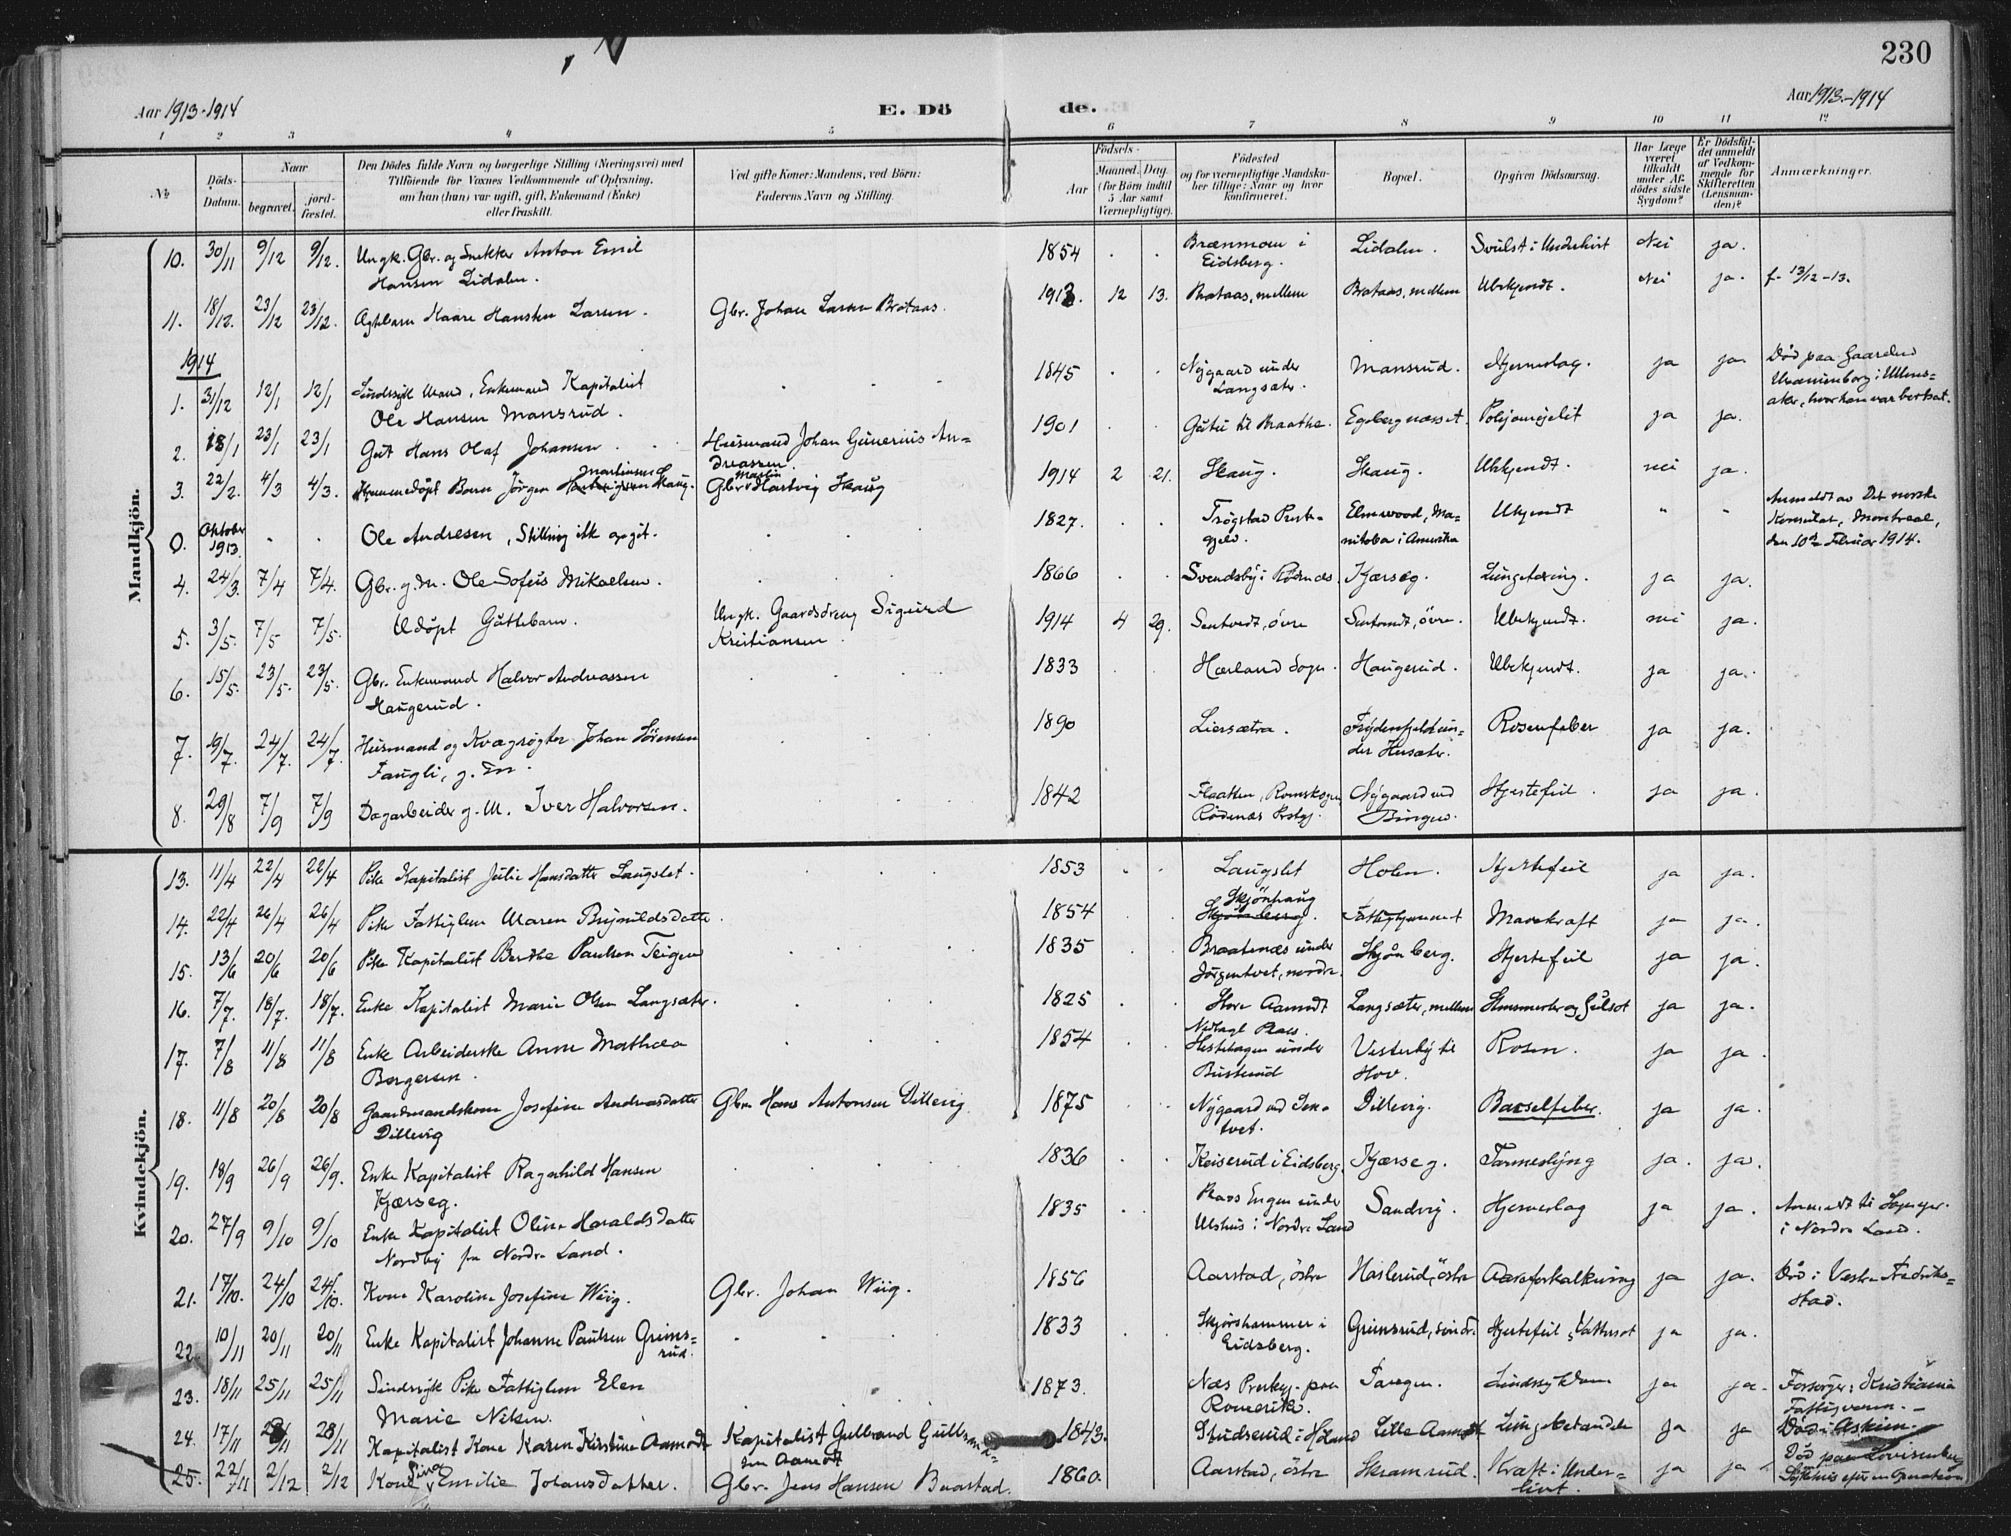 230
Aar 1913-1914
E. Dö
de.
Aar 1913-1914
1 2 3 4 5 6 7 8 9 10 11 12
No
Döds-Datum.
Naar
begravet.
jord-fæstet.
Den Dödes fulde Navn og borgerlige Stilling (Næringsvei) med
Tilföiende for Voxnes Vedkommende af Oplysning,
om han (hun) var ugift, gift, Enkemand (Enke)
eller fraskilt.
Ved gifte Koner: Mandens, ved Börn:
Faderens Navn og Stilling.
Födsels-
Aar
Maaned. Dag.
(for Börn indtil
5 Aar samt
Værnepligtige).
Födested
og for værnepligtige Mandska-
ber tillige: Naar og hvor
konfirmeret.
Bopæl.
Opgiven Dödsaarsag.
Har Læge
været
tilkaldt
under Af-
dödes sidste
Sygdom?
Er Dödsfal-
det anmeldt
af Vedkom-
mende for
Skifteretten
(Lensman-
den)?
Anmærkninger.
Mandkjön.
10. 30/11 9/12 9/12. Ungk. Gbr. og Snekker Anton Emil
Hansen Lidalen.
1854 Brænmoen i
Eidsberg. Lidalen. Svulst i Underlivet Nei ja.
11. 18/12. 23/12 23/12. Ægtebarn Kaare Hansten Larsen. Gbr. Johan Larsen Brataas.
1913. 12 13. Brataas, mellem Brataas, mellem Ubekjendt. Nei ja. f. 13/12-13.
1914
1. 31/12 12/1 12/1 Sindssyk Mand, Enkemand Kapitalist
Ole Hansen Mansrud.
1845 Nygaard under
Langsæter. Mansrud. Hjerneslag. ja ja. Död paa Gaarden
Uranienborg i Ullens-
aker, hvor han var bortsat.
2. 18/1 23/1 23/1 Gut Hans Olaf Johansen. Husmand Johan Gunerius An-
dreassen.
1901 Gutu til Braathe. Egebergnæsset. ja ja.
3. 22/2. 4/3 4/3. Hjemmedöpt Barn Jörgen Martinsen Skaug. Gbr. Martin Hartvig Skaug
1914 2 21. Skaug. Skaug. Ubekjendt. nei ja.
0. Oktober
1913. Ole Andresen, Stilling ikke opgit.
1827. Trøgstad Preste-
gjeld. Elmwood, Ma-
nitoba i Amerika Ukjendt " " Anmeldt av Det norske
Konsulat, Montreal,
den 10de Februar 1914.
4. 24/3. 7/4 7/4. Gbr. g.M. Ole Sofus Mikaelsen.
1866 Svendsby i Rødenes Kjærseg. Lungetæring. ja ja.
5. 3/5. 7/5 7/5. Udöpt Guttebarn. Ungk. Gaardsdreng Sigurd
Kristiansen.
1914 4 29. Sentvedt, övre Sentvedt, övre. Ubekjendt. nei ja.
6. 15/5. 23/5. 23/5. Gbr. Enkemand Halvor Andreassen
Haugerud.
1833 Hærland Sogn. Haugerud. Ubekjendt. ja ja.
7. 19/7. 24/7. 24/7. Husmand og Kvægrøgter Johan Sörensen
Faugli, g.M.
1890 Liersætra. Frydenfeldt un-
der Husæter. Rosenfeber ja ja.
8. 29/8 7/9 7/9 Dagarbeider g.M. Iver Halvorsen.
1842 Flaatten, Romskogen
Rödenæs Prstgj. Nygaard ved
Hjertefeil. ja ja.
Kvindekjön.
13. 11/4 22/4 22/4 Pike Kapitalist Julie Hansdatter Laugslet.
1853 Laugslet Holen. Hjertefeil ja ja.
14. 22/4 26/4 26/4 Pike Fattiglem Maren Brynildsdatter.
1854 Skjönhaug
Skjönberg. Mavekræft ja ja.
15. 13/6 20/6 20/6 Pike Kapitalist Berthe Paulsen Teigen
1835 Braatenæs under
Jörgentvet, nordre. Skjønberg. Hjertefeil ja ja.
16. 7/7. 18/7. 18/7. Enke Kapitalist Marie Olsen Langsæter.
1825 Store Aamodt Langsæter, mellem ja ja.
17. 7/8 11/8 11/8 Enke Arbeiderske Anne Mathea
Borgersen.
1854 Nedlagt Plads
Hestehagen under
Busterud Vesterby til
Hov. Rosen. ja ja.
18. 11/8 20/8 20/8 Gaardmandskone Josefine Andreasdatter
Dillevig Gbr. Hans Antonsen Dillevig.
1875 Nygaard ved Sen-
tvet. Dillevig. Barselfeber. ja ja.
19. 18/9 26/9 26/9. Enke Kapitalist Ragnhild Hansen
Kjærseg.
1836 Keiserud i Eidsberg. Kjærseg. Tarmeslyng ja. ja.
20. 27/9 9/10 9/10 Enke Kapitalist Oline Haraldsdatter
Nordby fra Nordre Land.
1835 Plads Engen under
Ulshus i Nordre Land Sandvig. Hjerneslag ja ja. Anmeldt til Sognepr.
i Nordre Land.
21. 17/10. 24/10 24/10. Kone Karoline Josefine Wiig. Gbr. Johan Wiig.
1856 Aarstad, östre Haslerud, östre Aareforkalkning ja ja. Död i Vestre Fredriks-
stad.
22. 10/11 20/11 20/11 Enke Kapitalist Johanne Paulsen Grims-
rud.
1833 Skjörshammer i
Eidsberg. Grimsrud, söndr. Hjertefeil, Vattersot ja ja.
23. 18/11 25/11 25/11 Sindssyk Pike Fattiglem Elen
Marie Nilsen.
1873. Næs Prestegj. paa
Romerike. Sindssygdom ja ja. Forsörges i Kristiania
Fattigvæsen.
24. 17/11 28/11 28/11 Kapitalist Kone Karen Kirstine Aamodt Kapitalist Gulbrand Gulbrand-
sen Aamodt
1843. Studsrud i Höland Lille Aamodt Lungebetændelse ja ja Död i Askim.
25. 22/11 2/12 2/12 Kone Lina Emilie Johansdatter. Gbr. Jens Hansen Baastad.
1860. Aarstad, östre Skramrud. Kræft i Under-
livet. ja ja Död paa Lovisenberg
Sykehus efter en Operation